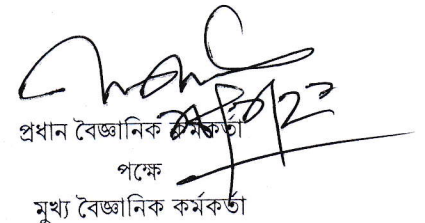 প্রধান বৈজ্ঞানিক কর্মকর্তা
পক্ষে
মুখ্য বৈজ্ঞানিক কর্মকর্তা